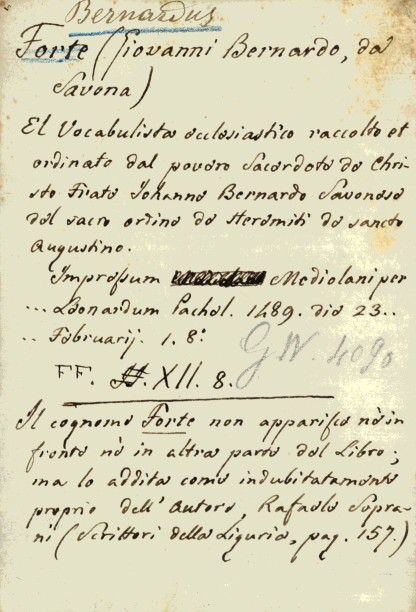 Bernardus
Forte (Giovanni Bernardo, da
Savona)
El Vocabulista eclesiastico raccolto et
ordinato dal povero Sacerdote de Chri-
sto Frate Johanne Bernardo Savonese
del sacro ordine de Heremiti de sancto
Augustino.
Impressum Mediolani per
... Leonardum Pachel. 1489. die 23..
.. Februarij. 1. 8.º
GW. 4090
FF. XII. 8.
Il cognome Forte non apparisce nè in
fronte nè in altra parte del Libro;
ma lo addita come indubitatamente
proprio dell' Autore, Rafaele Sopra-
ni (Scrittori della Liguria, pag. 157.)